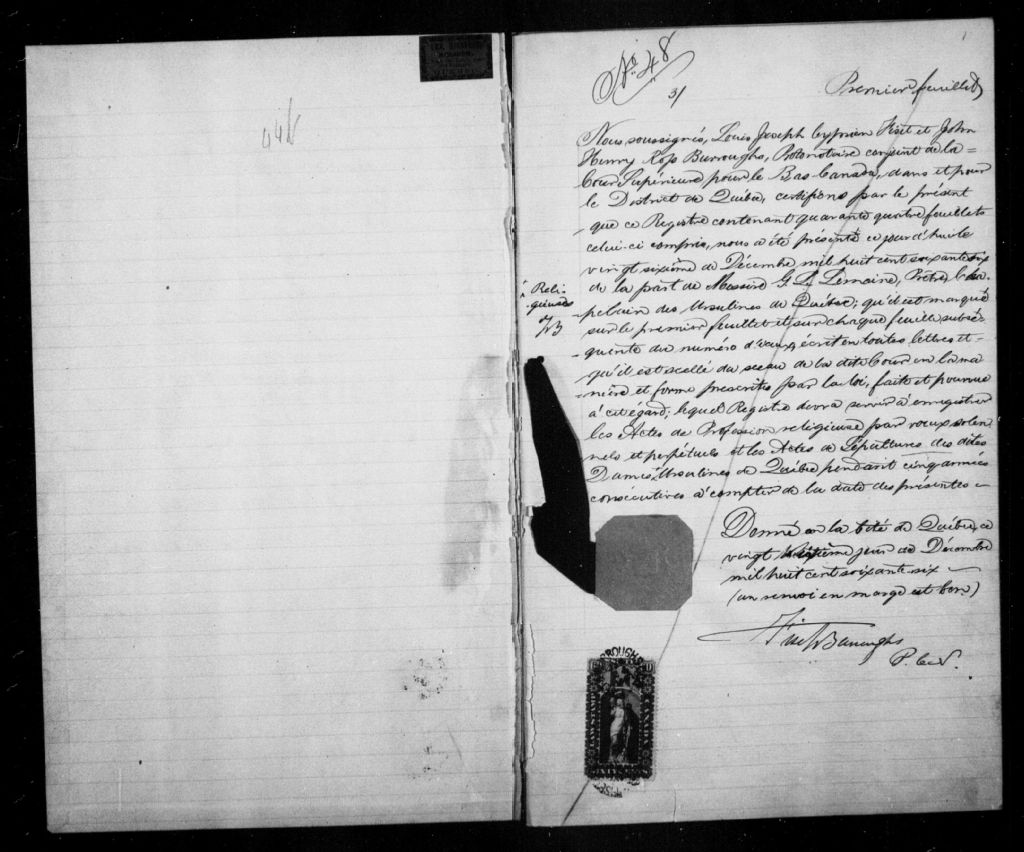 446
No 48
3/
1
Premier feuillet
Nous soussignés, Louis Joseph Cyprien Fiset et John
Henry Ross Burroughs, Protonotaire conjoint de la
Cour Supérieure pour le Bas Canada, dans et pour
le District de Québec, certifions par le présent
que ce Registre contenant quarante quatre feuillets
celui-ci compris, nous a été présenté ce jour d'hui le
vingt sixième de Décembre mil huit cent soixante six
de la part de Messire G. L. Lemoine, Prêtre, Cha-
pelain des Ursulines de Québec; qu'il est marqué
sur le premier feuillet et sur chaque feuille subsé-
quente du numéro d'iceux, écrit en toutes lettres et
qu'il est scellé du sceau de la dite Cour en la ma
nière et forme prescrites par la loi, faite et pourvue
à cet égard; lequel Registre devra servir à enregistrer
les Actes de Profession religieuse par voeux solen
nels et perpétuels et les Actes de Sépultures des dites
Dames Ursulines de Québec pendant cinq années
consécutives à compter de la date des présentes
Reli-
gieuses
Donné en la Cité de Québec, ce
vingt sixième jour de Décembre
mil huit cent soixante six
(un renvoi en marge est bon)
Fiset & Burroughs
P. C. S.
BROUGHS
LAW STAMP
CANADA